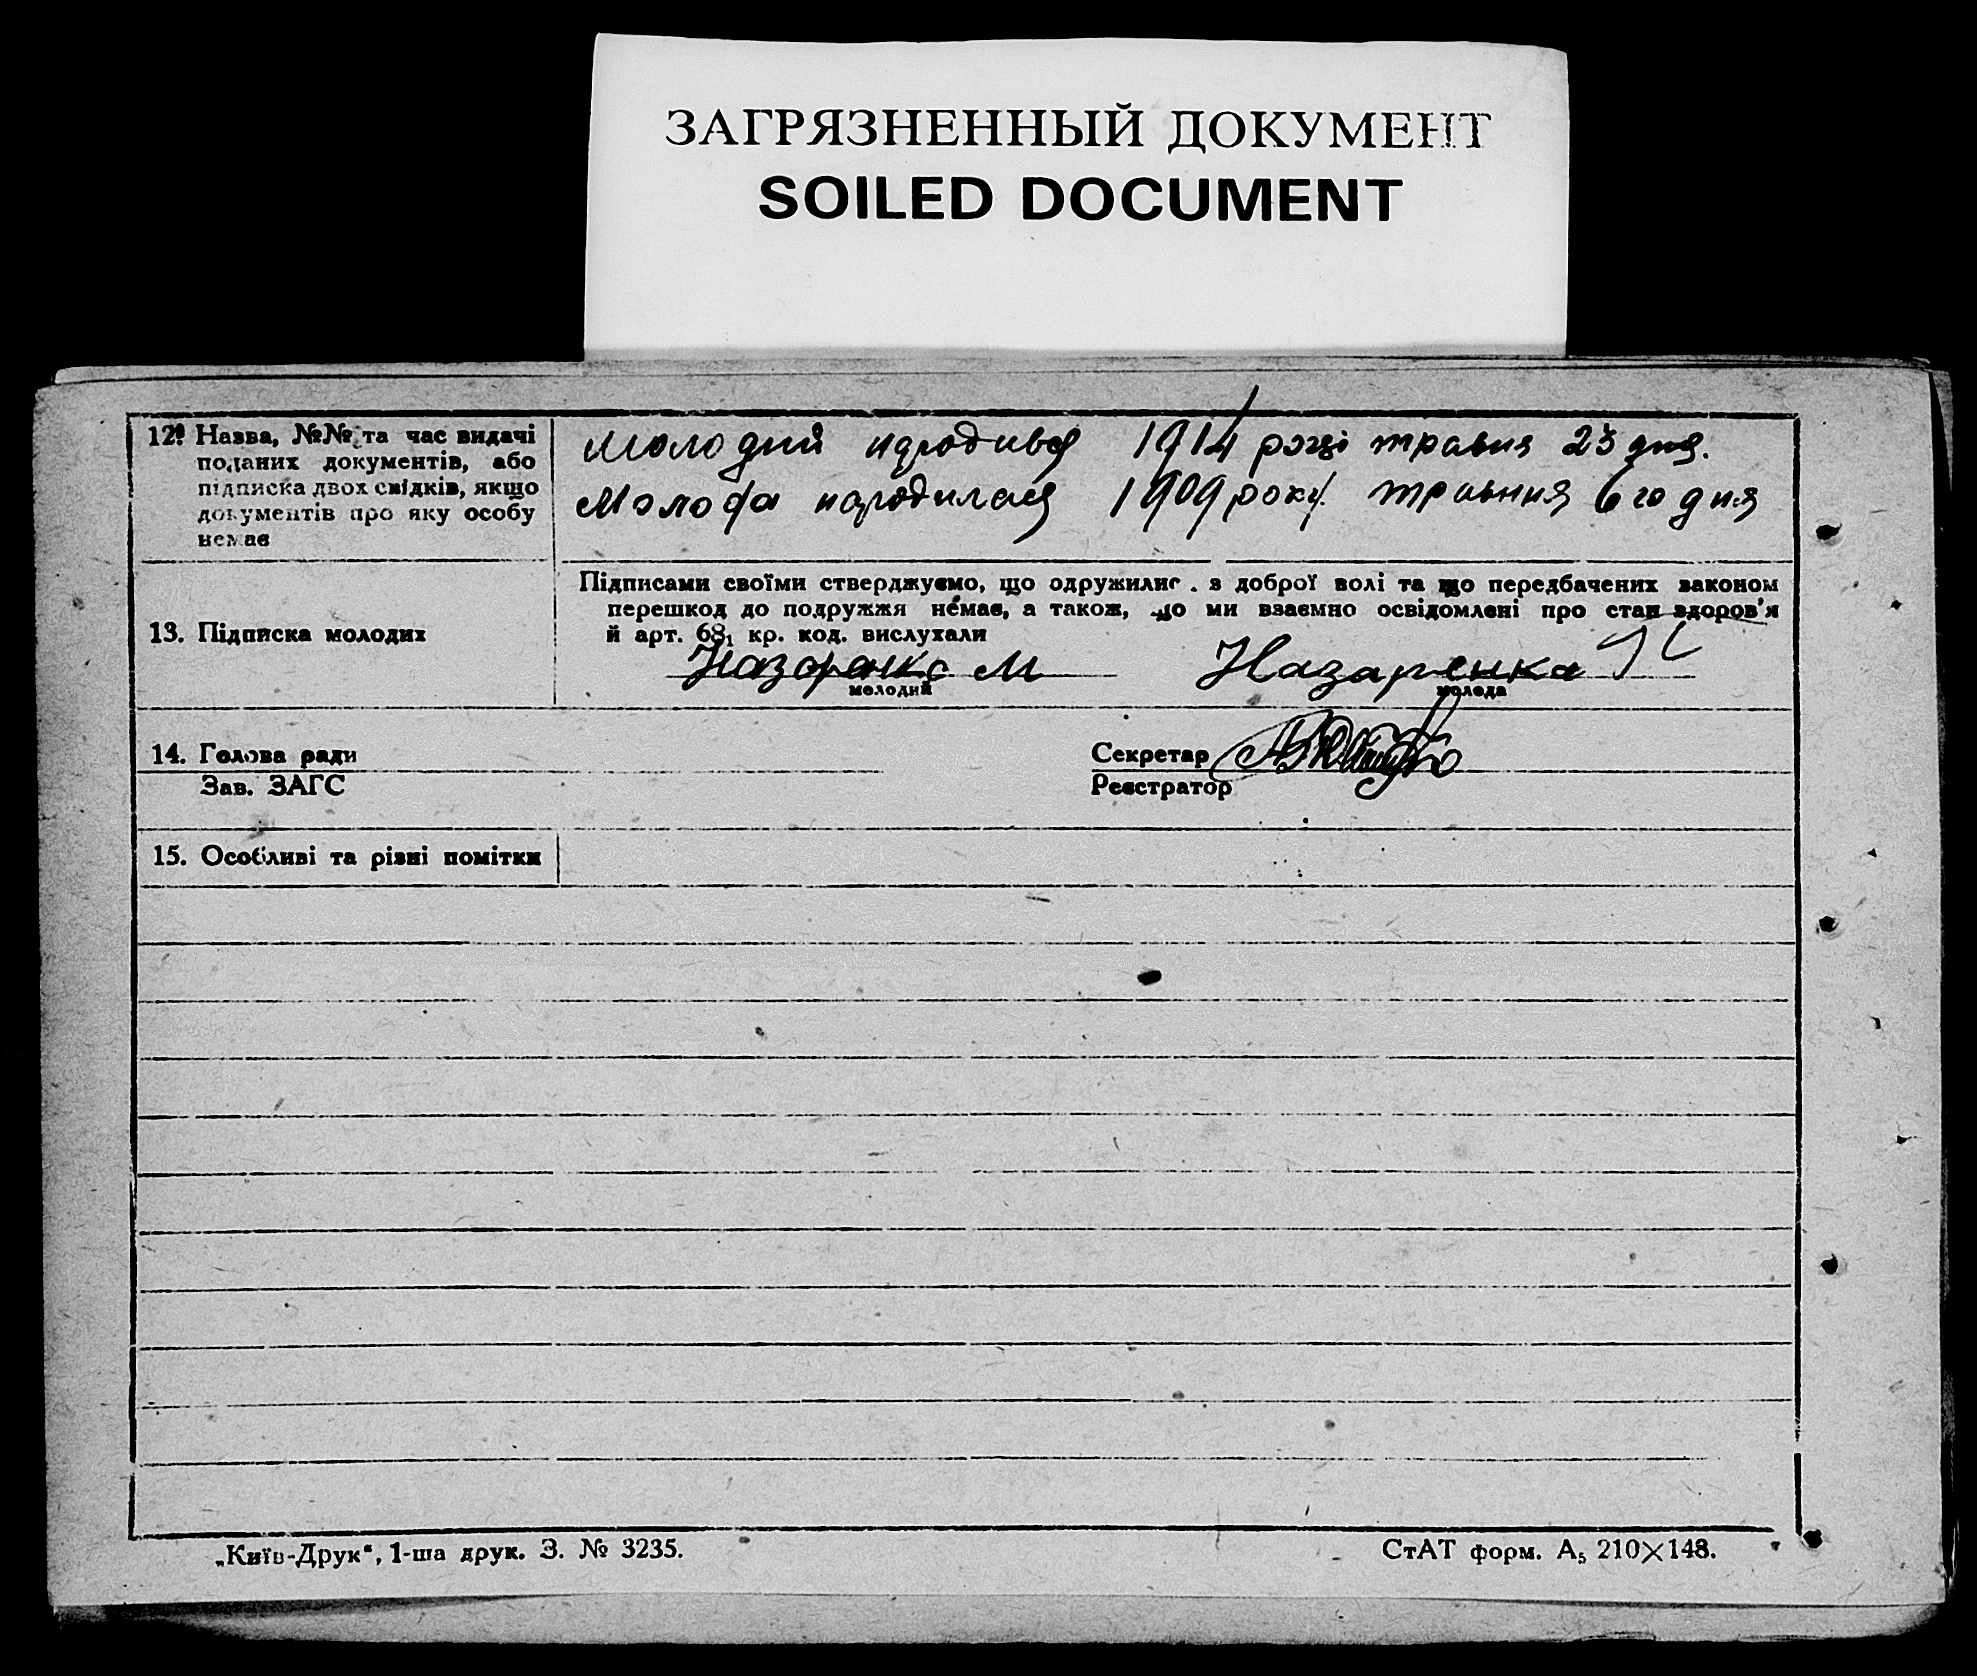 ЗАГРЯЗНЕННЫЙ ДОКУМЕНТ
SOILED DOCUMENT
12. Назва, №№ та час видачі
поданих документів, або
підписка двох свідків, якщо
документів про яку особу
немає
Молодий народивсь 1914 році травня 23 дня.
Молода народилась 1909 року травння 6 го дня
13. Підписка молодих
Підписами своїми стверджуємо, що одружились з доброї волі та що передбачених законом
перешкод до подружжя немає, а також, що ми взаємно освідомлені про стан здоров'я
й арт. 68₁ кр. код. вислухали
Назаренко М Назаренка
молодий молода
14. Голова ради Секретар
Зав. ЗАГС Реєстратор
15. Особливі та різні помітки
„Київ-Друк“, 1-ша друк. З. № 3235. СтАТ форм. А₅ 210×148.